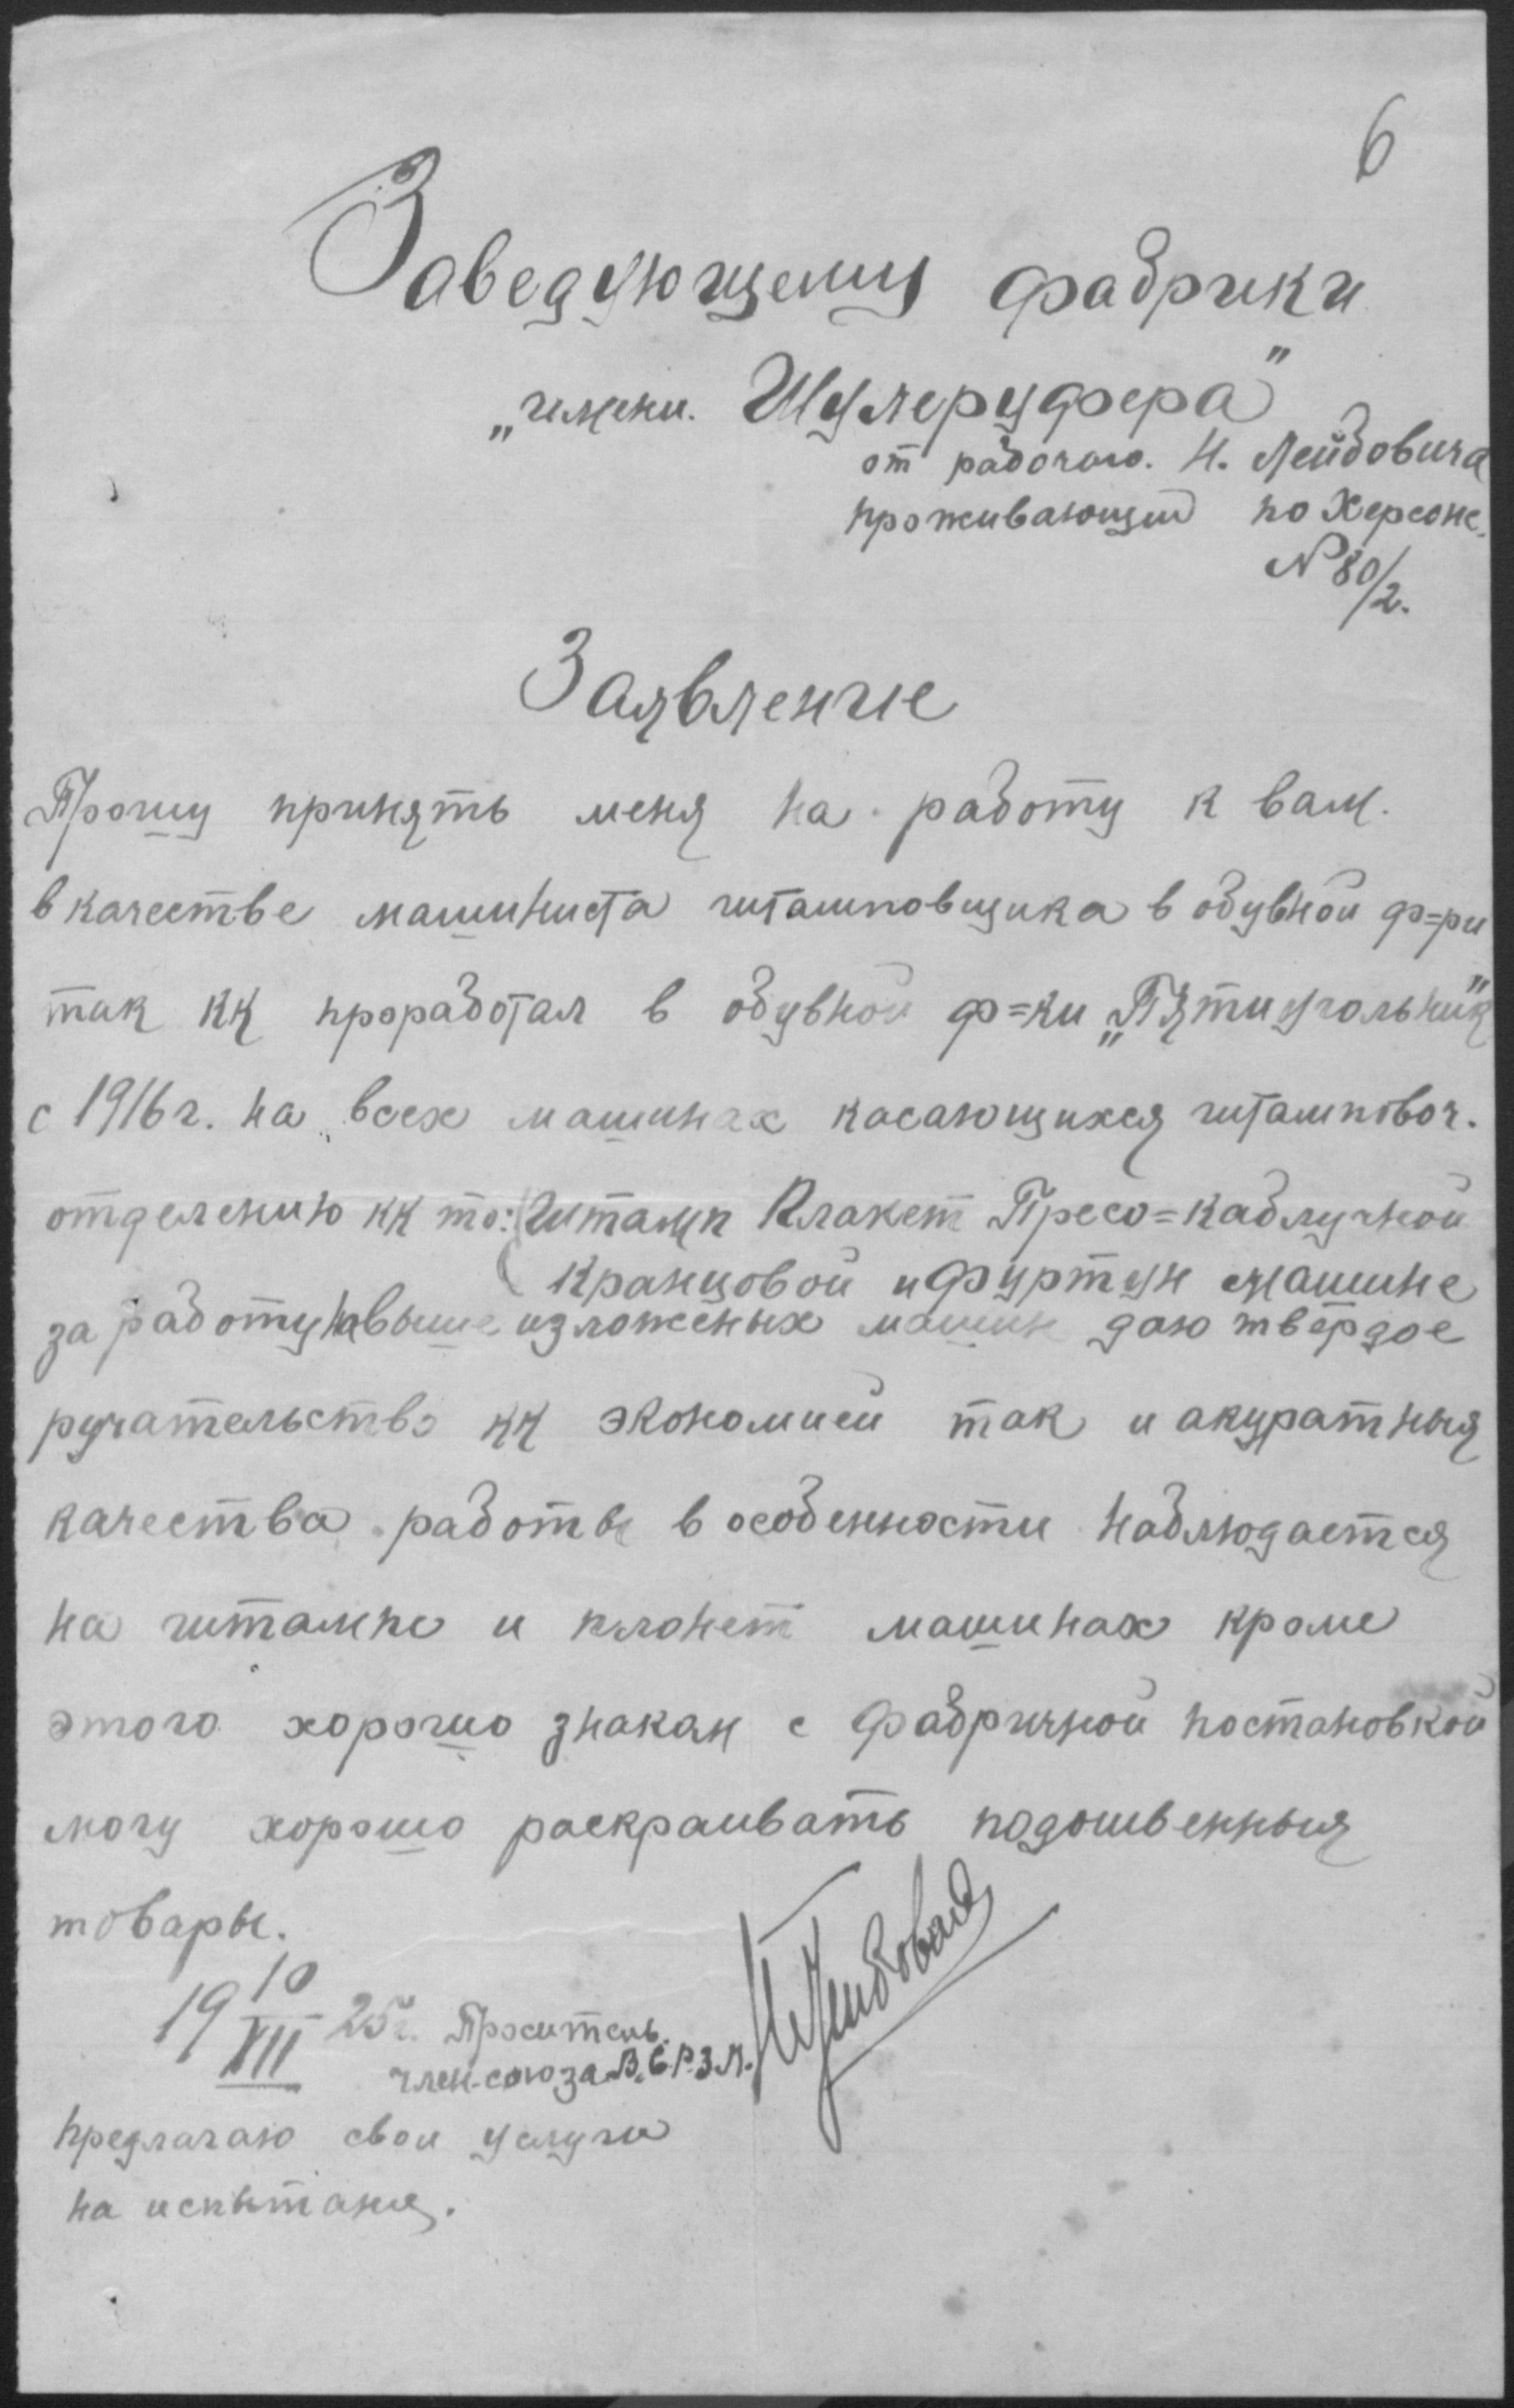 6
Заведующему фабрики
„имени. Шулеруфера"
от рабочаго. Н. Лейбовича
проживающий по Херсонс.
№ 80/2.
Заявление
Прошу принять меня на работу к вам.
в качестве машиниста штамповщика в обувной ф=ри
так кк проработал в обувной ф=ки „Пятиугольник"
с 1916 г. на всех машинах касающихся штамповоч.
отделению кк то: Штамп Плакет Пресо=каблучной
кранцовой и Фуртун машине
за работу навыше изложеных машин даю твёрдое
ручательство кк экономией так и акуратныя
качества работы в особенности наблюдается
на штампе и планет машинах кроме
этого хорошо знакам с фабричной постановкой
могу хорошо раскраивать подошвенныя
товары.
19 10/XII 25 г. Проситель.
член-союза В.С.Р.З.М.
предлагаю свои услуги
на испытания.